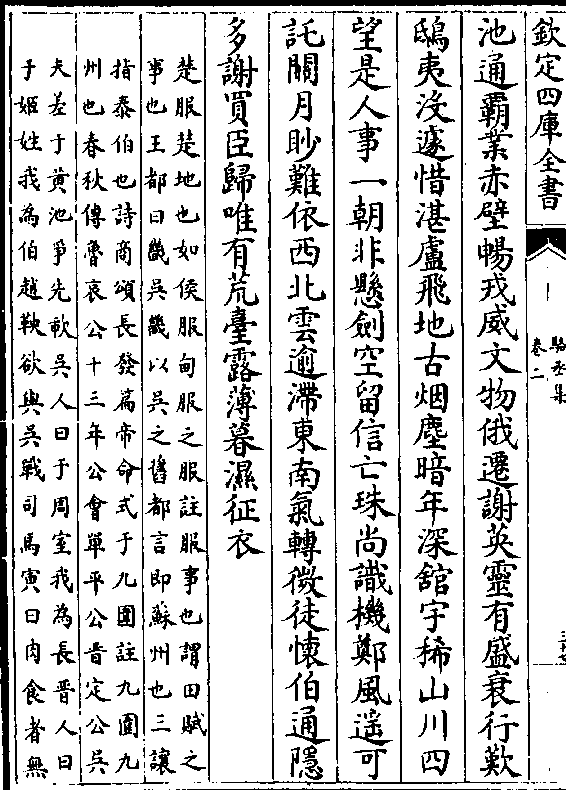 欽定四庫全書
駱丞集
卷二
池通霸業赤壁暢戎威文物俄遷謝英靈有盛衰行歎
鴟夷沒遽惜湛盧飛地古烟塵暗年深舘宇稀山川四
望是人事一朝非懸劍空留信亡珠尚識機鄭風遥可
託關月眇難依西北雲逾滯東南氣轉微徒懷伯通隱
多謝買臣歸唯有荒臺露薄暮濕征衣
楚服楚地也如侯服甸服之服註服事也謂田賦之
事也王都曰畿吳畿以吳之舊都言即蘇州也三讓
指泰伯也詩商頌長發篇帝命式于九圍註九圍九
州也春秋傳魯哀公十三年公會單平公晋定公吳
夫差于黄池爭先歃吳人曰于周室我為長晋人曰
于姬姓我為伯趙鞅欲與吳戰司馬寅曰肉食者無